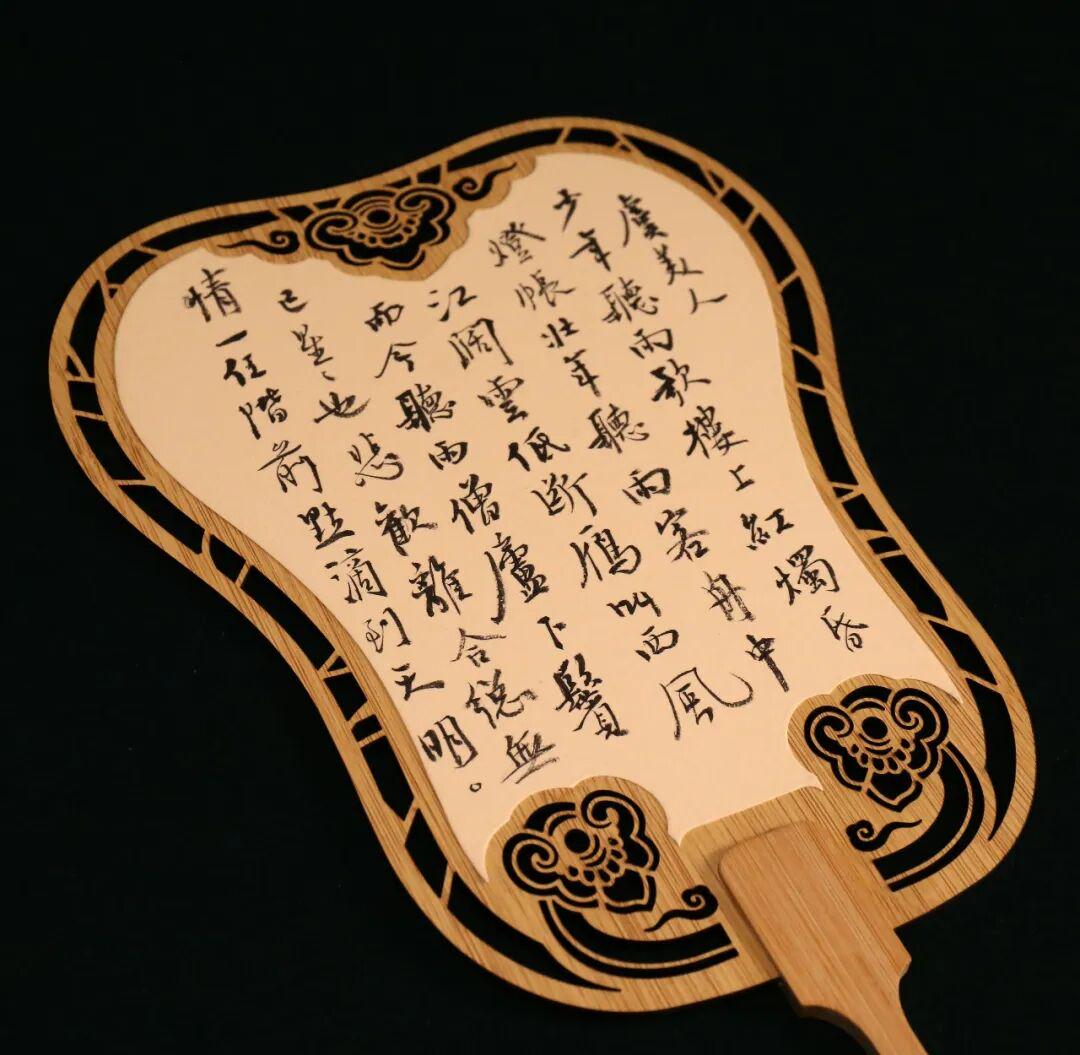 虞美人
少年聽雨歌樓上紅燭昏
燈帳壯年聽雨客舟中
江闊雲低斷鴈叫西風
而今聽雨僧廬下鬢
已星〻也悲歡離合總無
情一任階前點滴到天明。